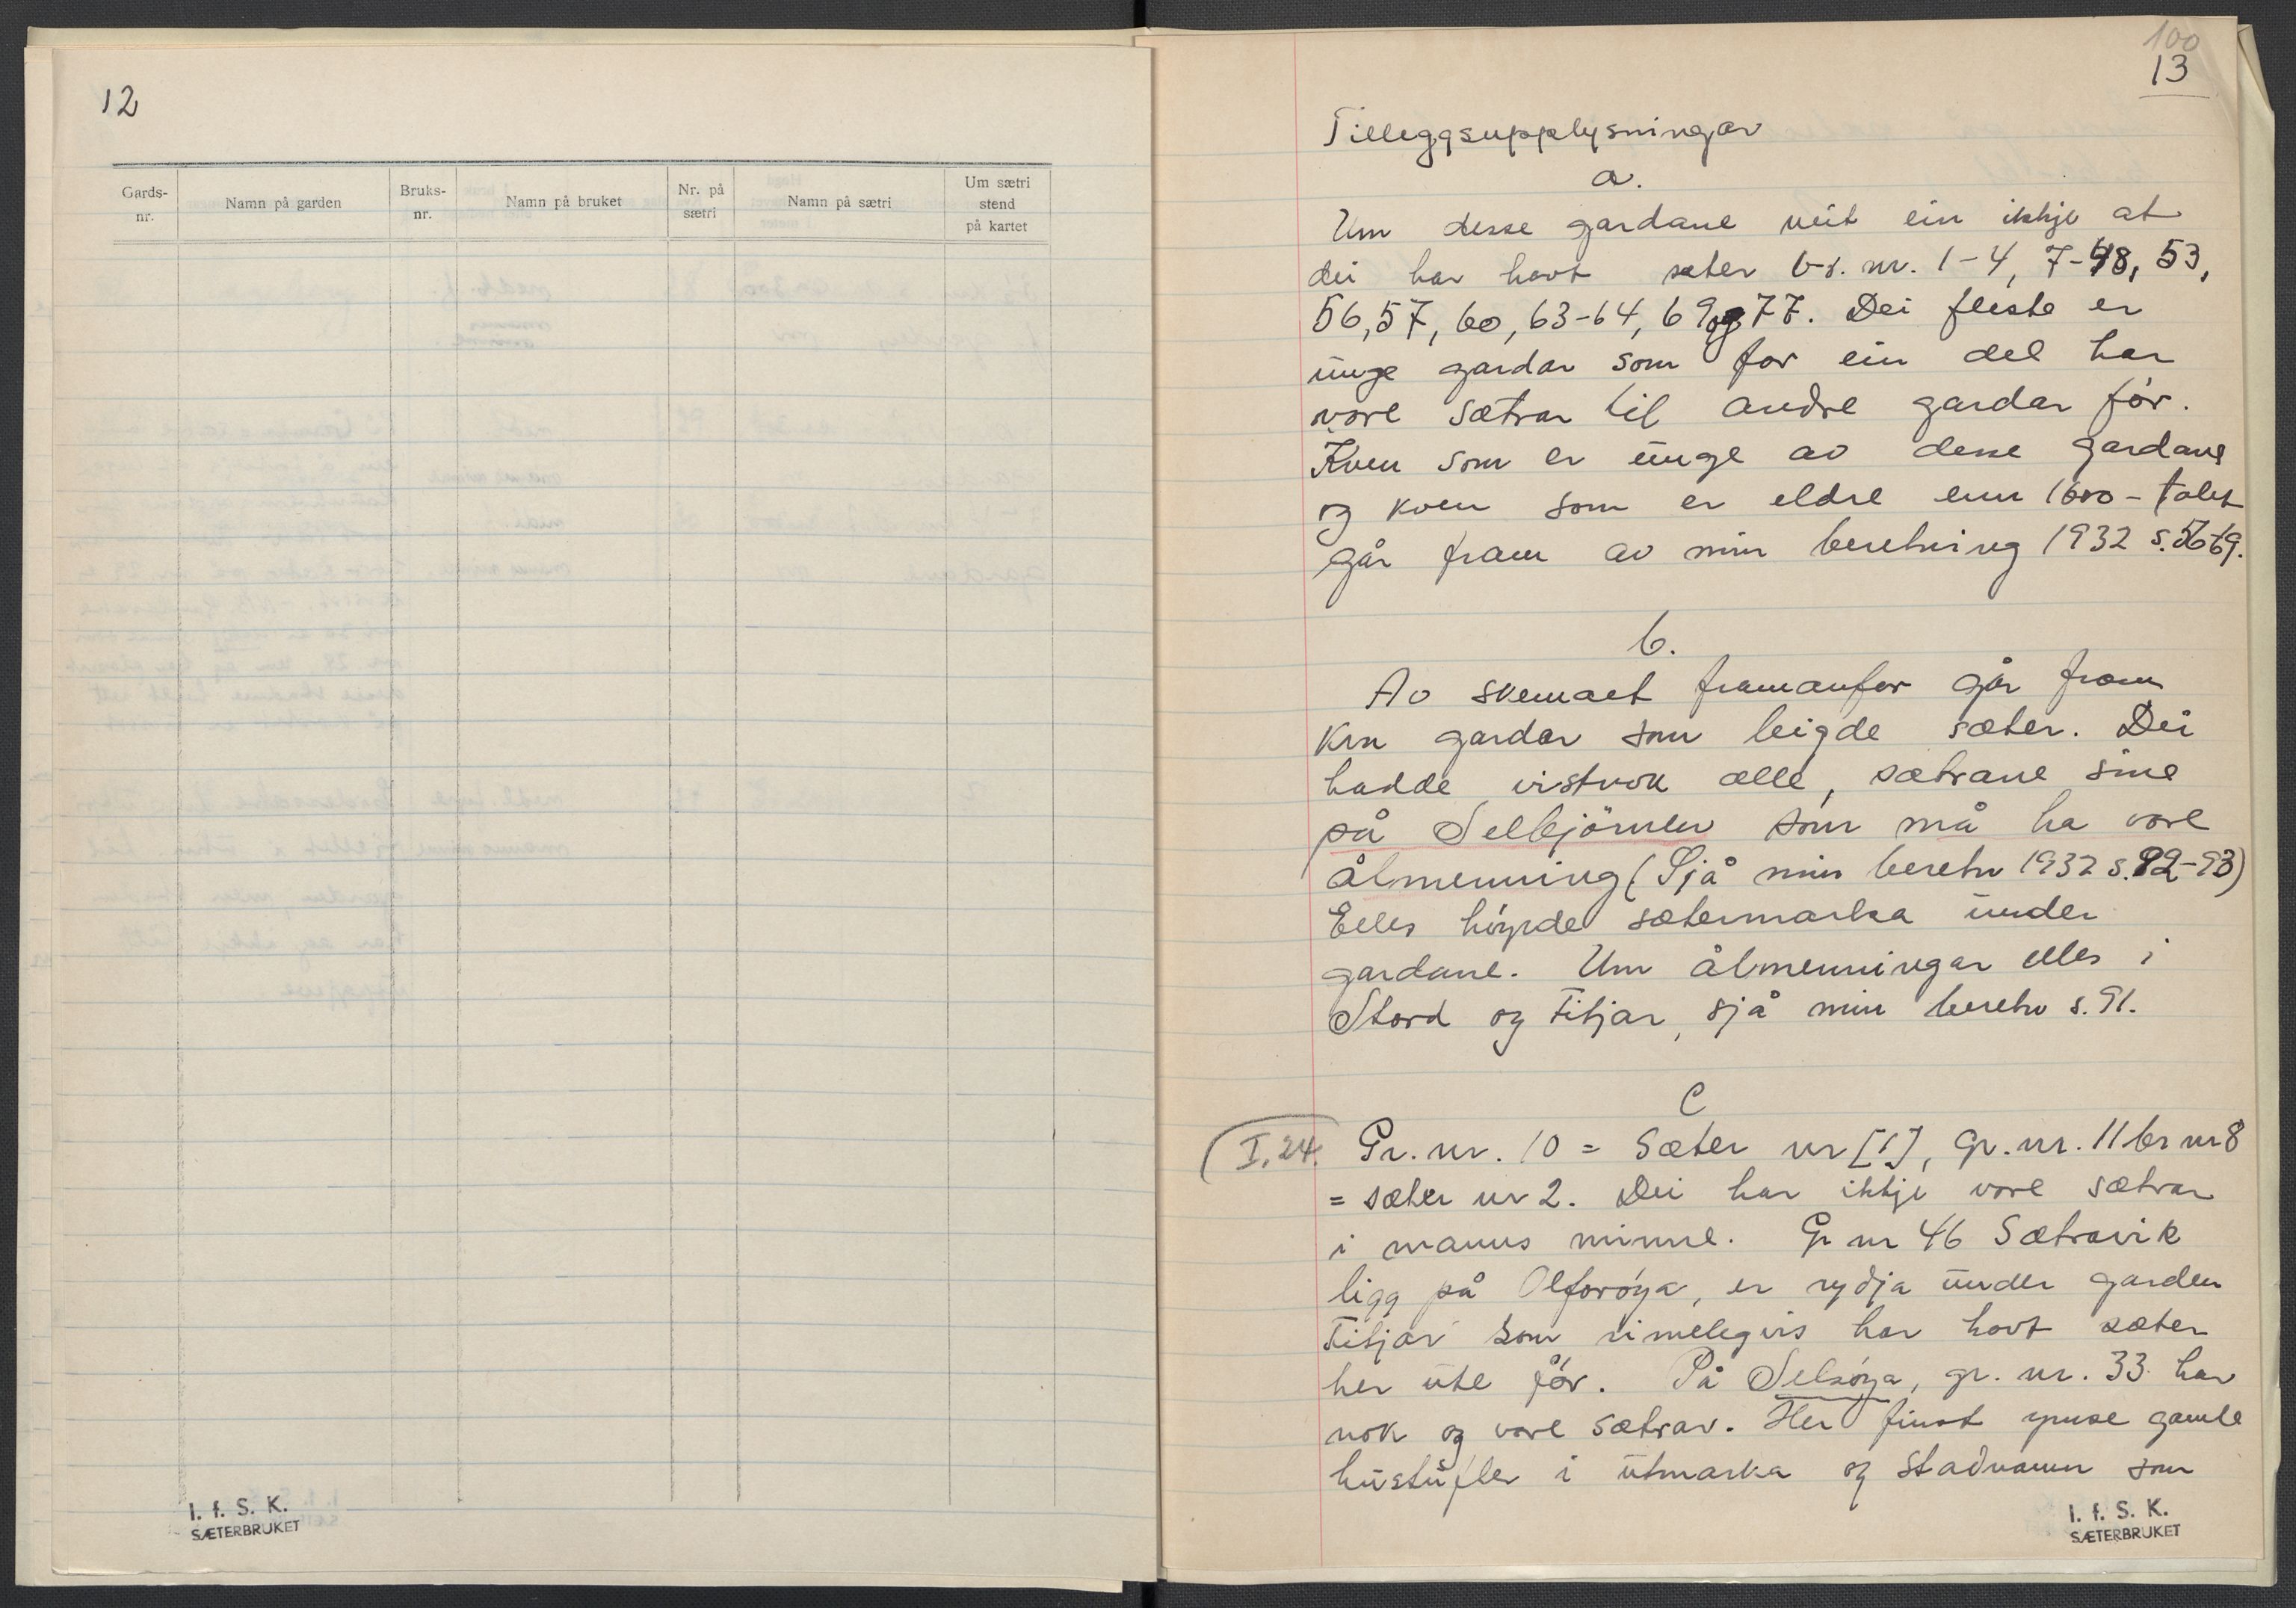 12
Gards-
nr.
Namn på garden
Bruks-
nr.
Namn på bruket
Nr. på
sætri
Namn på sætri
Um sætri
stend
på kartet
I. f. S. K.
SÆTERBRUKET
100
13
Tilleggsupplysningar
a.
Um desse gardane veit ein ikkje at
dei har havt sæter nr. 1-4, 7-48, 53,
56, 57, 60, 63-64, 69 og 77. Dei fleste er
unge gardar som for ein del har
vore sætrar til andre gardar før.
Kven som er unge av desse gardane
og kven som er eldre enn 1600-talet
går fram av min beretning 1932 s. 56-69.
b.
Av skemaet framanfor går fram
kva gardar som leigde sæter. Dei
hadde vistnok alle, sætrane sine
på Selbjörnen som må ha vore
ålmenning (Sjå min beretn 1932 s. 92-93)
Elles höyrde sætermarka under
gardane. Um ålmenningar elles i
Stord og Fitjar, sjå min beretn s. 91.
C
I, 24. Gr. nr. 10 = Sæter nr [1], gr. nr. 11 br nr 8
= sæter nr 2. Dei har ikkje vore sætrar
i manns minne. Gr nr 46 Sætravik
ligg på Olforöya, er rydja under garden
Fitjar som rimelegvis har havt sæter
her ute för. På Selsöya, gr. nr. 33 har
nok og vore sætrar. Her finst ymse gamle
hustufter i utmarka og stadnamn som
I. f. S. K.
SÆTERBRUKET